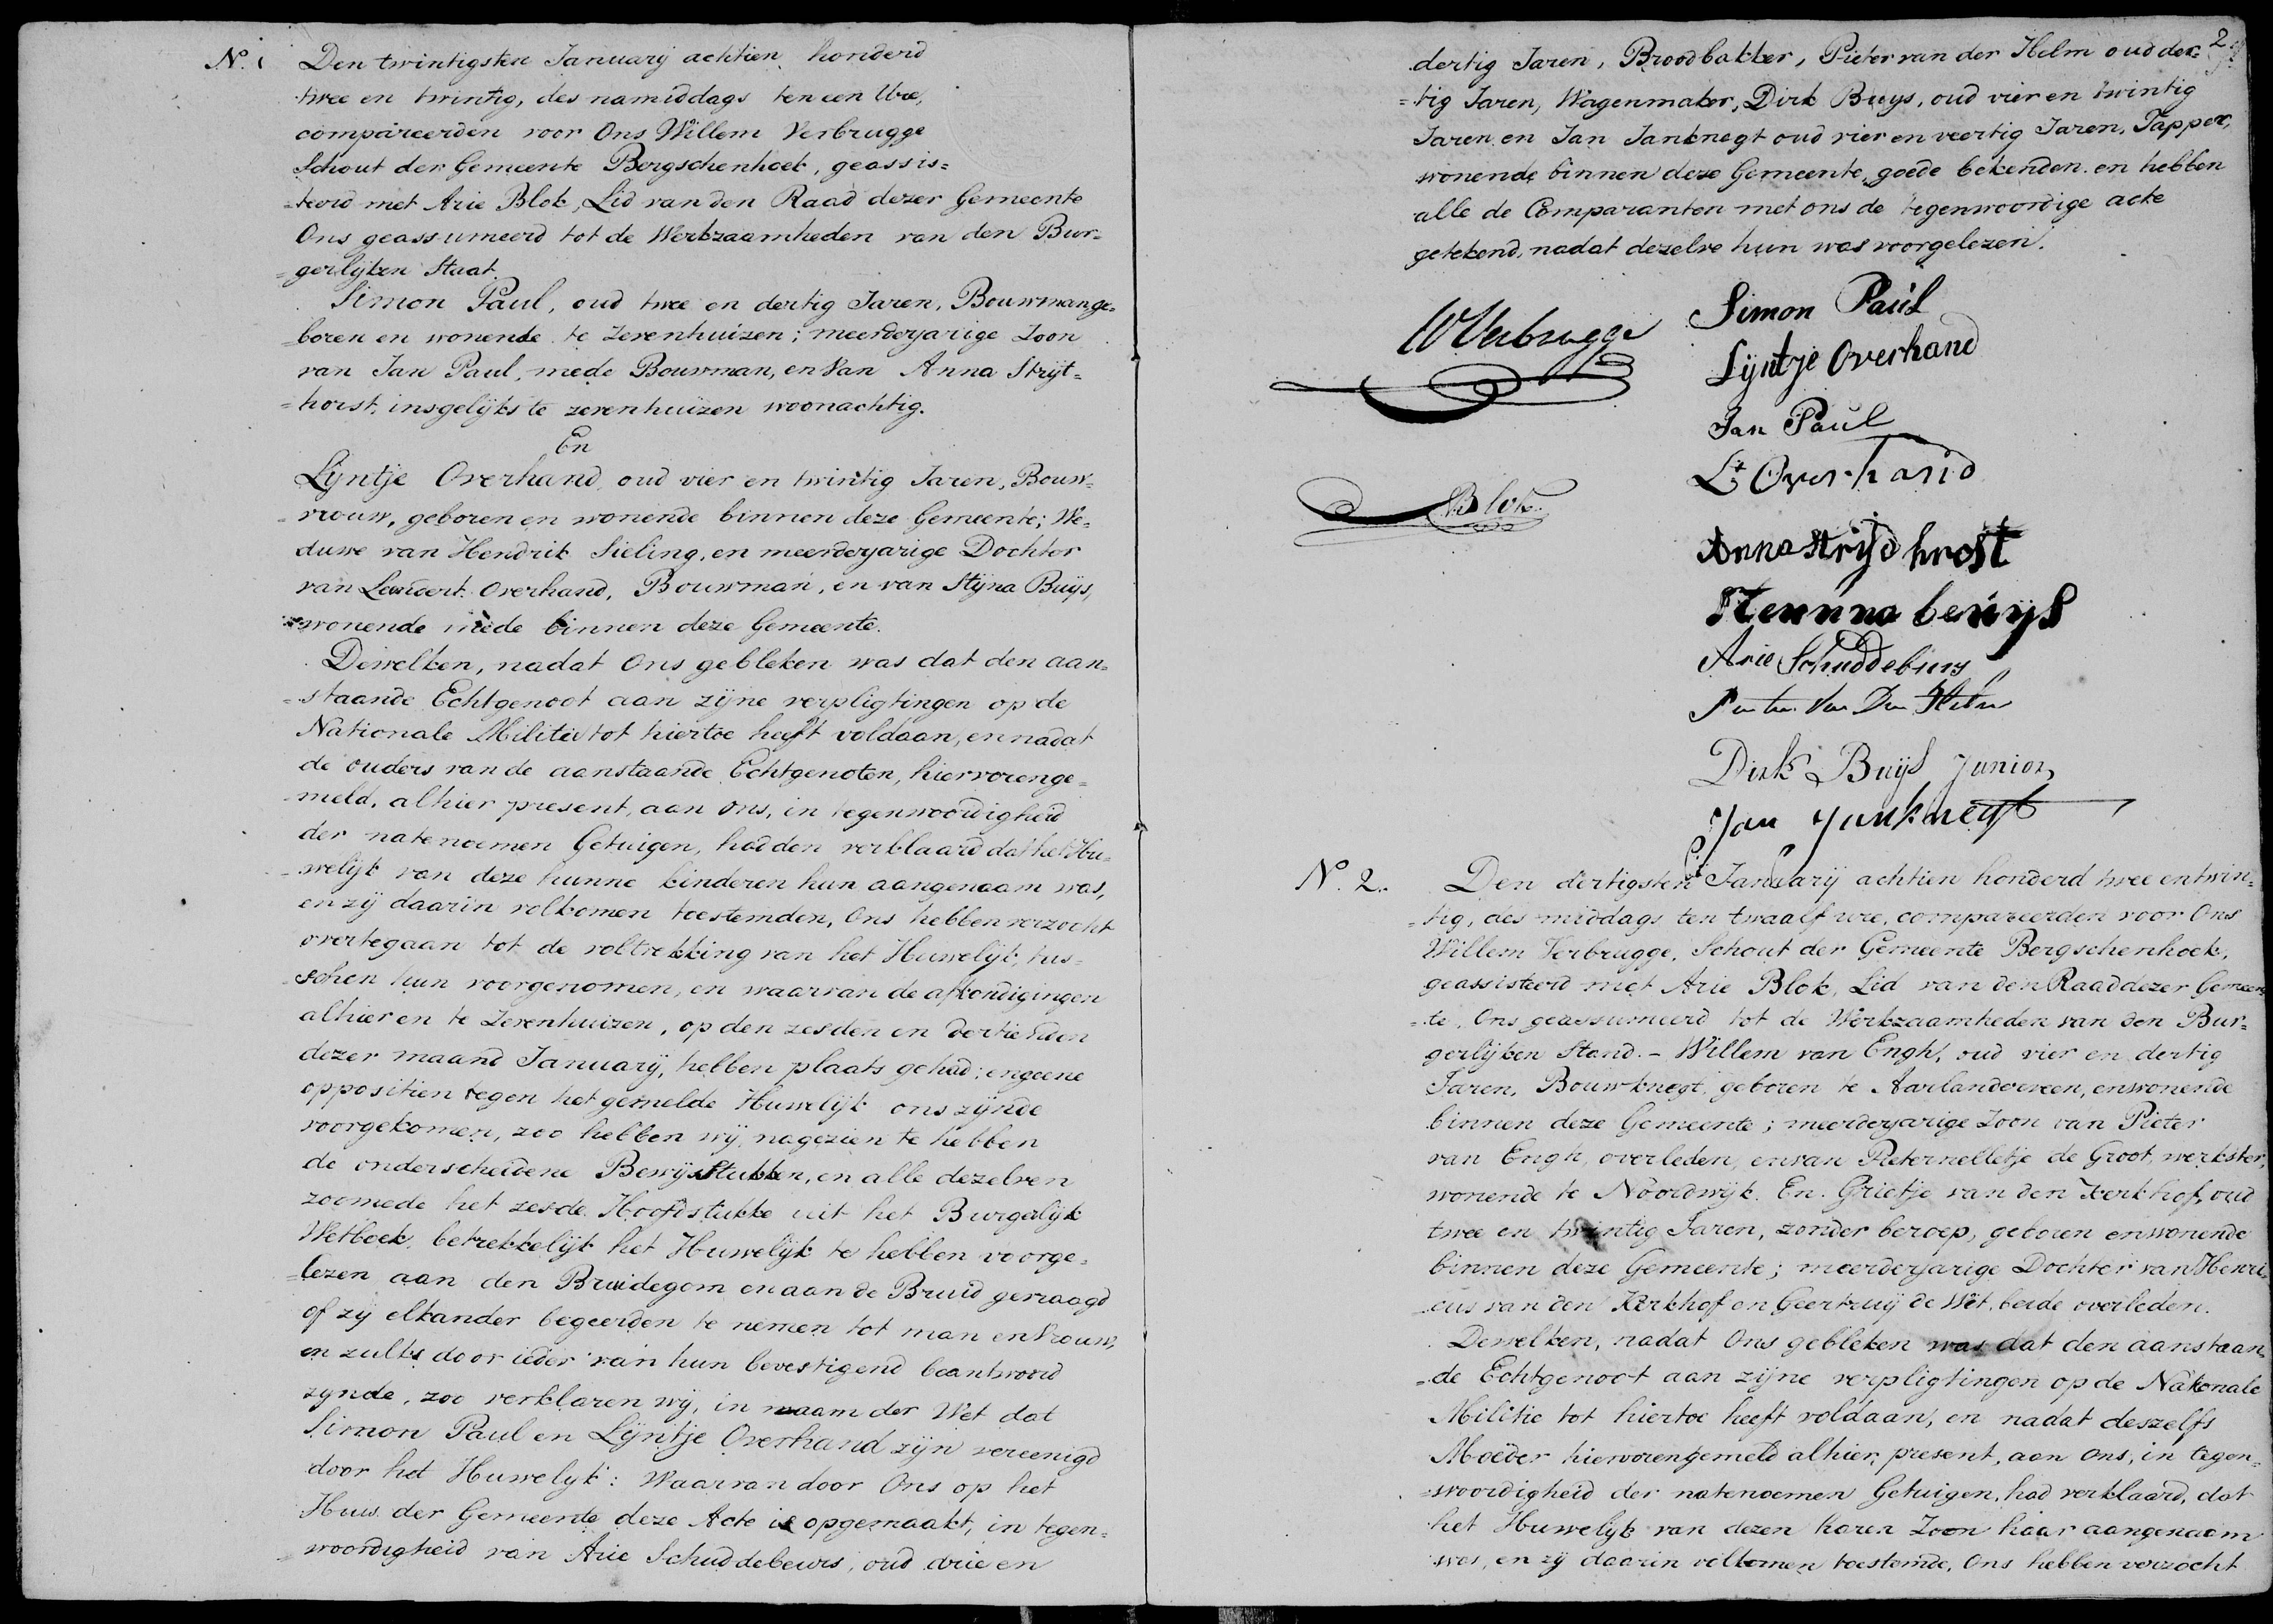 N.1 Den twintigsten January achtien honderd
twee en twintig, des namiddags ten een Ure,
compareerden voor Ons Willem Verbrugge
Schout der Gemeente Bergschenhoek, geassis=
=teerd met Arie Blok, Lid van den Raad dezer Gemeente
Ons geassumeerd tot de Werkzaamheden van den Bur=
=gerlijken Staat.
Simon Paul, oud twee en dertig Jaren, Bouwman, ge=
=boren en wonende te Zevenhuizen; meerderjarige Zoon
van Jan Paul, mede Bouwman, en Van Anna Strijt=
=horst, insgelijks te zevenhuizen woonachtig.
En
Lijntje Overhand, oud vier en twintig Jaren, Bouw=
=vrouw, geboren en wonende binnen deze Gemeente; We=
duwe van Hendrik Sieling, en meerderjarige Dochter
van Leendert Overhand, Bouwman, en van Stijna Buijs,
wonende mede binnen deze Gemeente.
Dewelken, nadat Ons gebleken was dat den aan=
=staande Echtgenoot aan zijne verpligtingen op de
Nationale Militie tot hiertoe heeft voldaan, en nadat
de ouders van de aanstaande Echtgenoten, hiervorenge=
=meld, alhier present, aan Ons, in tegenwoordigheid
der natenoemen Getuigen, hadden verklaard dat het Hu=
=welijk van deze hunne kinderen hun aangenaam was,
en zij daarin volkomen toestemden, Ons hebben verzocht
overtegaan tot de voltrekking van het Huwelijk, tus=
=schen hun voorgenomen, en waarvan de afkondigingen
alhier en te Zevenhuizen, op den zesden en dertienden
dezer maand January, hebben plaats gehad; en geene
oppositien tegen het gemelde Huwelijk ons zijnde
voorgekomen, zoo hebben wij, nagezien te hebben
de onderscheidene Bewijsstukken, en alle dezelven
zoomede het zesde Hoofdstukke uit het Burgerlijk
Wetboek, betrekkelijk het Huwelijk te hebben voorge=
=lezen aan den Bruidegom en aan de Bruid gevraagd
of zij elkander begeerden te nemen tot man en Vrouw,
en zulks door ieder van hun bevestigend beantwoord
zijnde, zoo verklaren wij, in naam der Wet dat
Simon Paul en Lijntje Overhand zijn vereenigd
door het Huwelijk: Waarvan door Ons op het
Huis der Gemeente deze Acte is opgemaakt, in tegen=
woordigheid van Arie Schuddebeurs, oud drie en
2
dertig Jaren, Broodbakker, Pieter van der Helm oud der=
=tig Jaren, Wagenmaker, Dirk Buys, oud vier en twintig
Jaren en Jan Janknegt oud vier en veertig Jaren, Tapper,
wonende binnen deze Gemeente, goede bekenden en hebben
alle de Comparanten met ons de tegenwoordige acte
getekend, nadat dezelve hun was voorgelezen.
WVerbrugge
Simon Paul
Lijntje Overhand
Jan Paul
Lt Overhand
Blok
Anna Strijdhrost
Steunna beuijs
Arie Schuddeburs
Pieter Van Der Helm
Dirk Buijs Junior
Jan Janknegt
N. 2. Den dertigsten January achtien honderd twee en twin=
=tig, des middags ten twaalf ure, compareerden voor Ons
Willem Verbrugge, Schout der Gemeente Bergschenhoek,
geassisteerd met Arie Blok, Lid van den Raad dezer Gemeen=
=te, Ons geassumeerd tot de Werkzaamheden van den Bur=
gerlijken Stand. - Willem van Engh, oud vier en dertig
Jaren, Bouwknegt, geboren te Aarlanderveen, en wonende
binnen deze Gemeente; meerderjarige Zoon van Pieter
van Engh, overleden, en van Pieternelletje de Groot, werkster,
wonende te Noordwijk. En. Grietje van den Kerkhof, oud
twee en twintig Jaren, zonder beroep, geboren en wonende
binnen deze Gemeente; meerderjarige Dochter van Henri=
=cus van den Kerkhof en Geertruij de Wit, beide overleden.
Dewelken, nadat Ons gebleken was dat den aanstaan=
=de Echtgenoot aan zijne verpligtingen op de Nationale
Militie tot hiertoe heeft voldaan, en nadat deszelfs
Moeder hiervorengemeld alhier, present, aan Ons, in tegen=
=woordigheid der natenoemen Getuigen, had verklaard, dat
het Huwelijk van dezen haren Zoon haar aangenaam
was, en zij daarin volkomen toestemde, Ons hebben verzocht